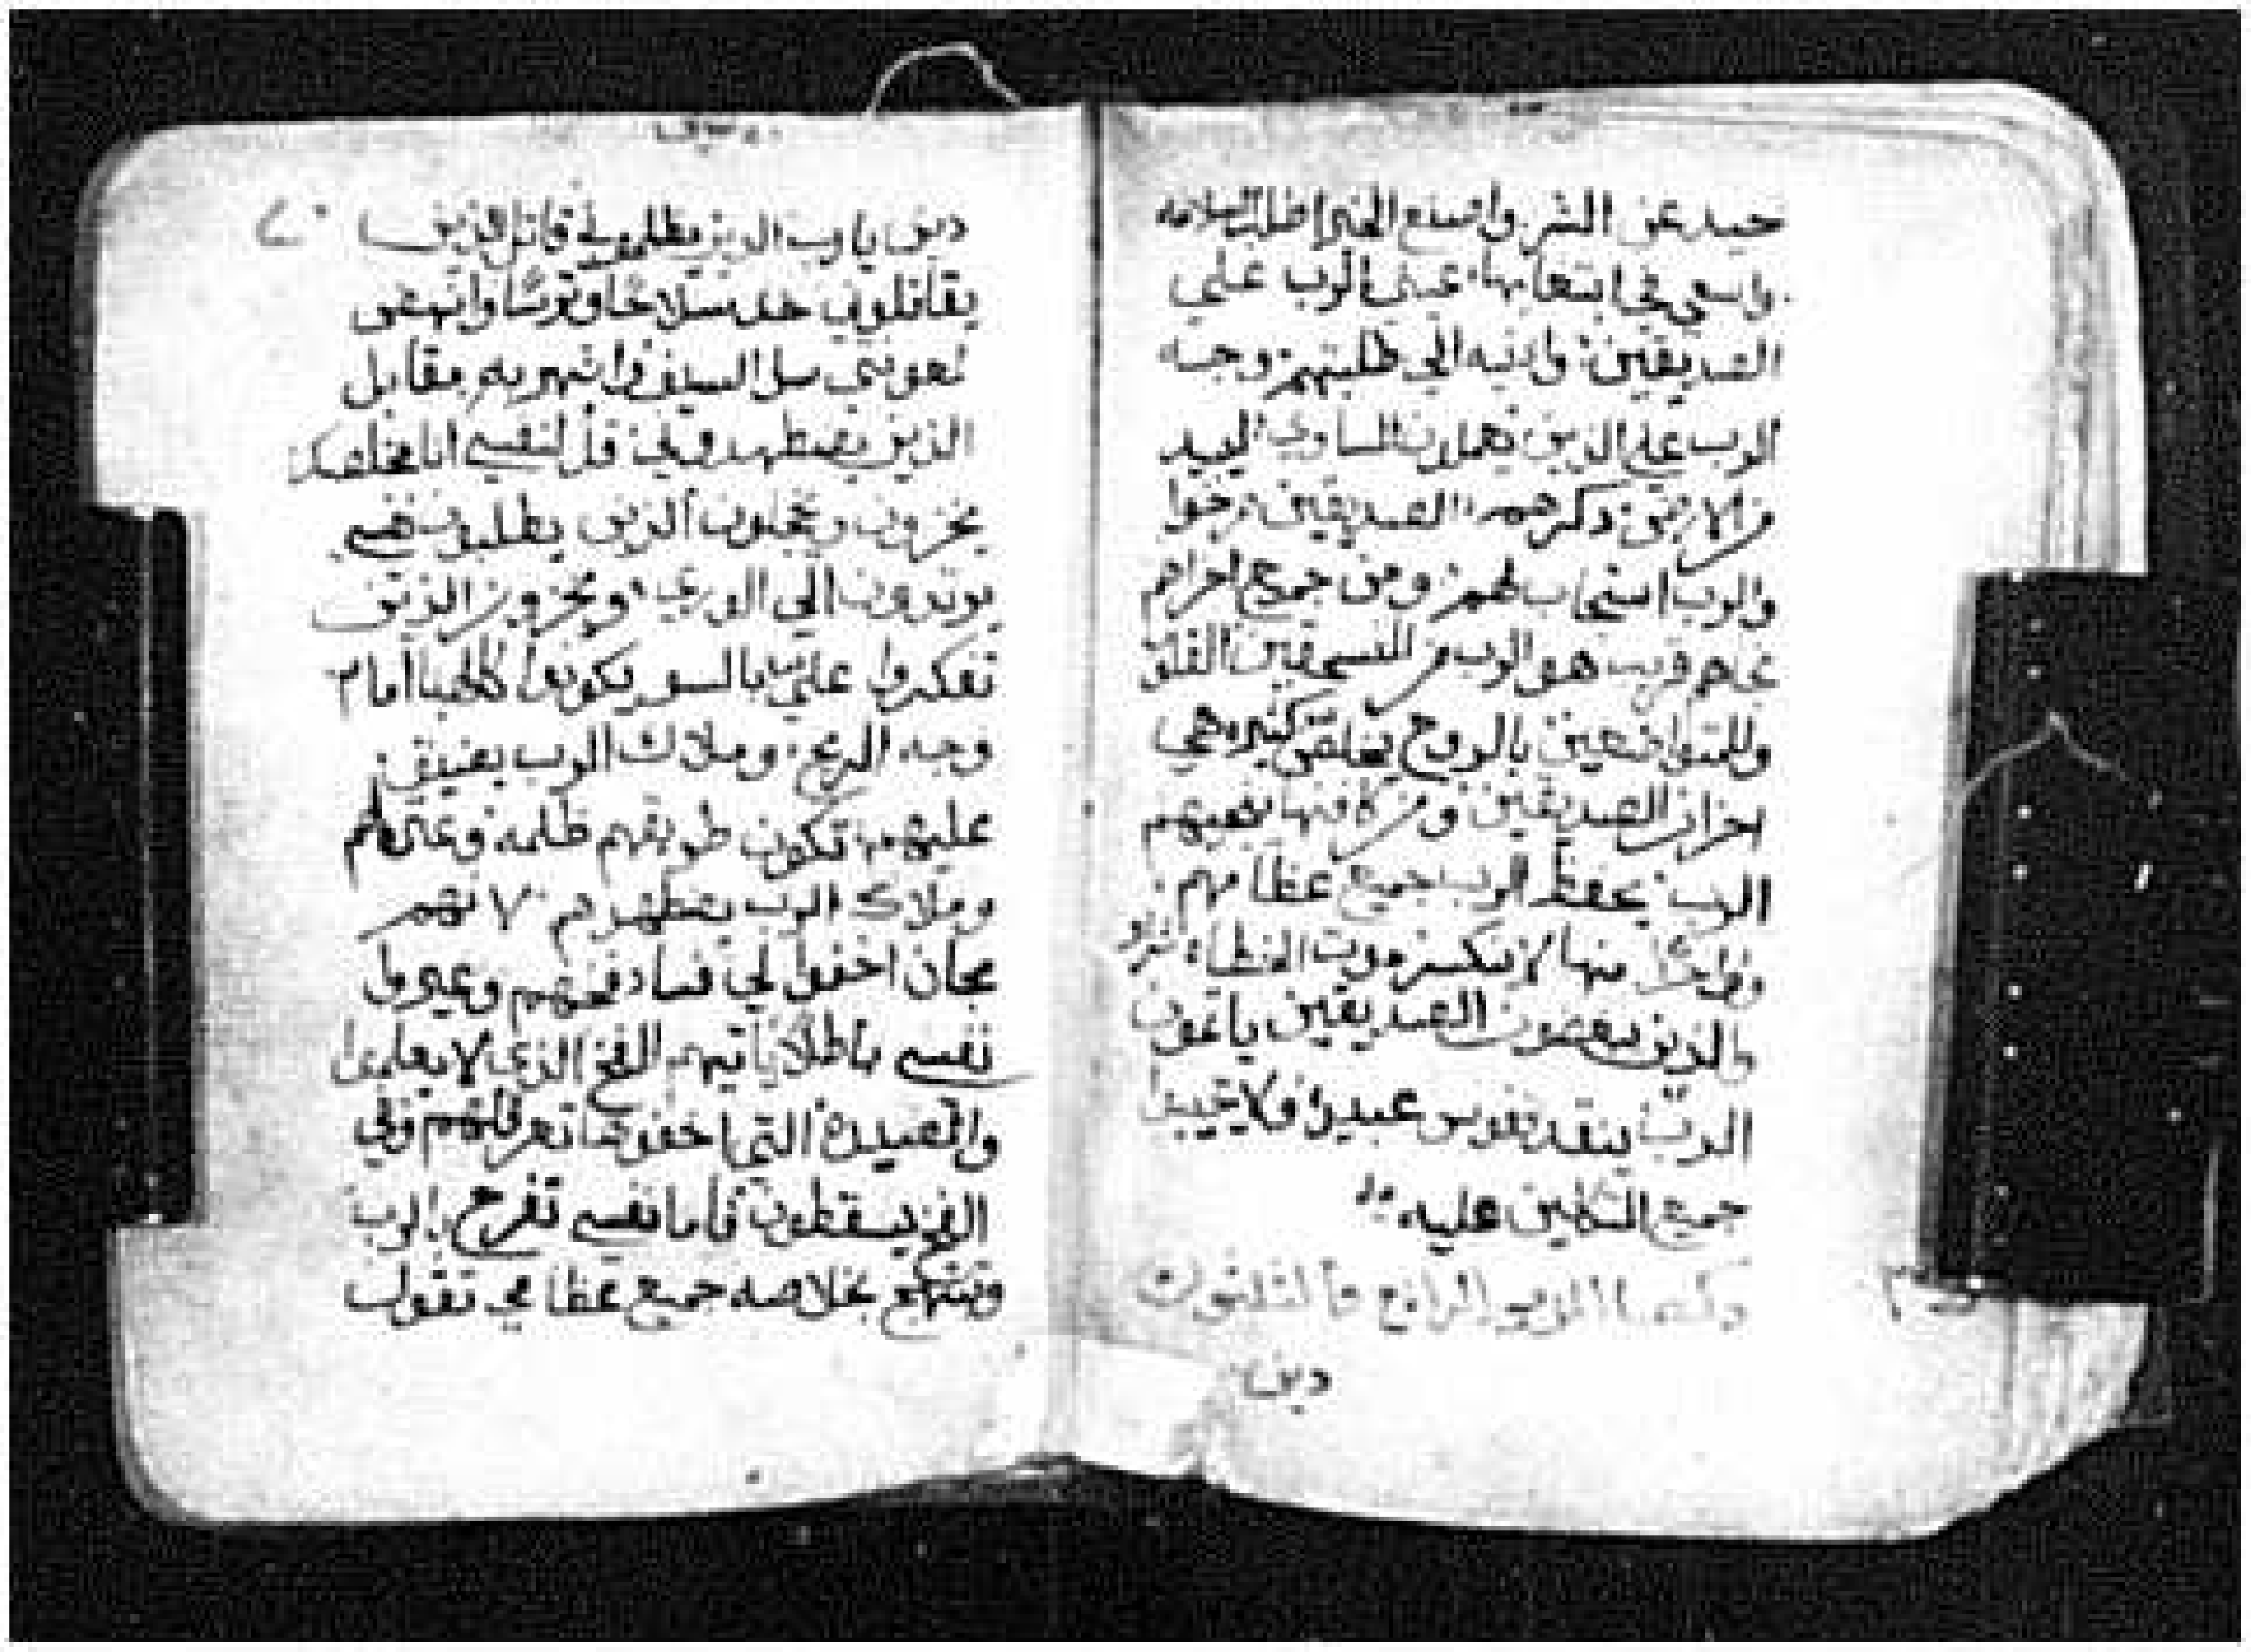 حيد عن الشر واصنع الخير اطلب السلامه
واسعى في ابتغايها عيني الرب علي
الصديقين واذنيه الي طلبتهم وجه
الرب علي الذين يعملون المساوي ليبيد
من الارض ذكرهم الصديقين صرخوا
والرب استجاب لهم ومن جميع احزانهم
نجاهم قريب هو الرب من المنسحقين القلوب
وللمتواضعين بالروح يخلص كثيره هي
احزان الصديقين ومن كافتها ينجيهم
الرب يحفظ الرب جميع عظامهم
وواحدًا منها لا ينكسر موت الخطاه شرير
والذين يبغضون الصديقين ياثمون
الرب ينقذ نفوس عبيده ولا يخيب
جميع المتكلين عليه
المزمور الرابع والثلثون
دين
دين يا رب الذين يظلموني قاتل الذين
يقاتلوني خد سلاحًا وترسًا وانهض
لعونتي سل السيف وانتهر به مقابل
الذين يضطهدوني قل لنفسي انا مخلصك
يخزون ويخجلون الذين يطلبون نفسي
يرتدون الي الوري ويخزون الذين
تفكروا عليّ بالسو يكونوا كالهبا امام
وجه الريح وملاك الرب يضيق
عليهم تكون طريقهم ظلمه و
وملاك الرب يضطهدهم لانهم
مجان اخفوا لي فساد فخهم وعيروا
نفسي باطلًا ياتيهم الفخ الذي لا يعلموا
والمصيده التي اخفوها تعرقلهم وفي
الفخ يسقطون فاما نفسي تفرح بالرب
وتبتهج بخلاصه جميع عظامي تقول